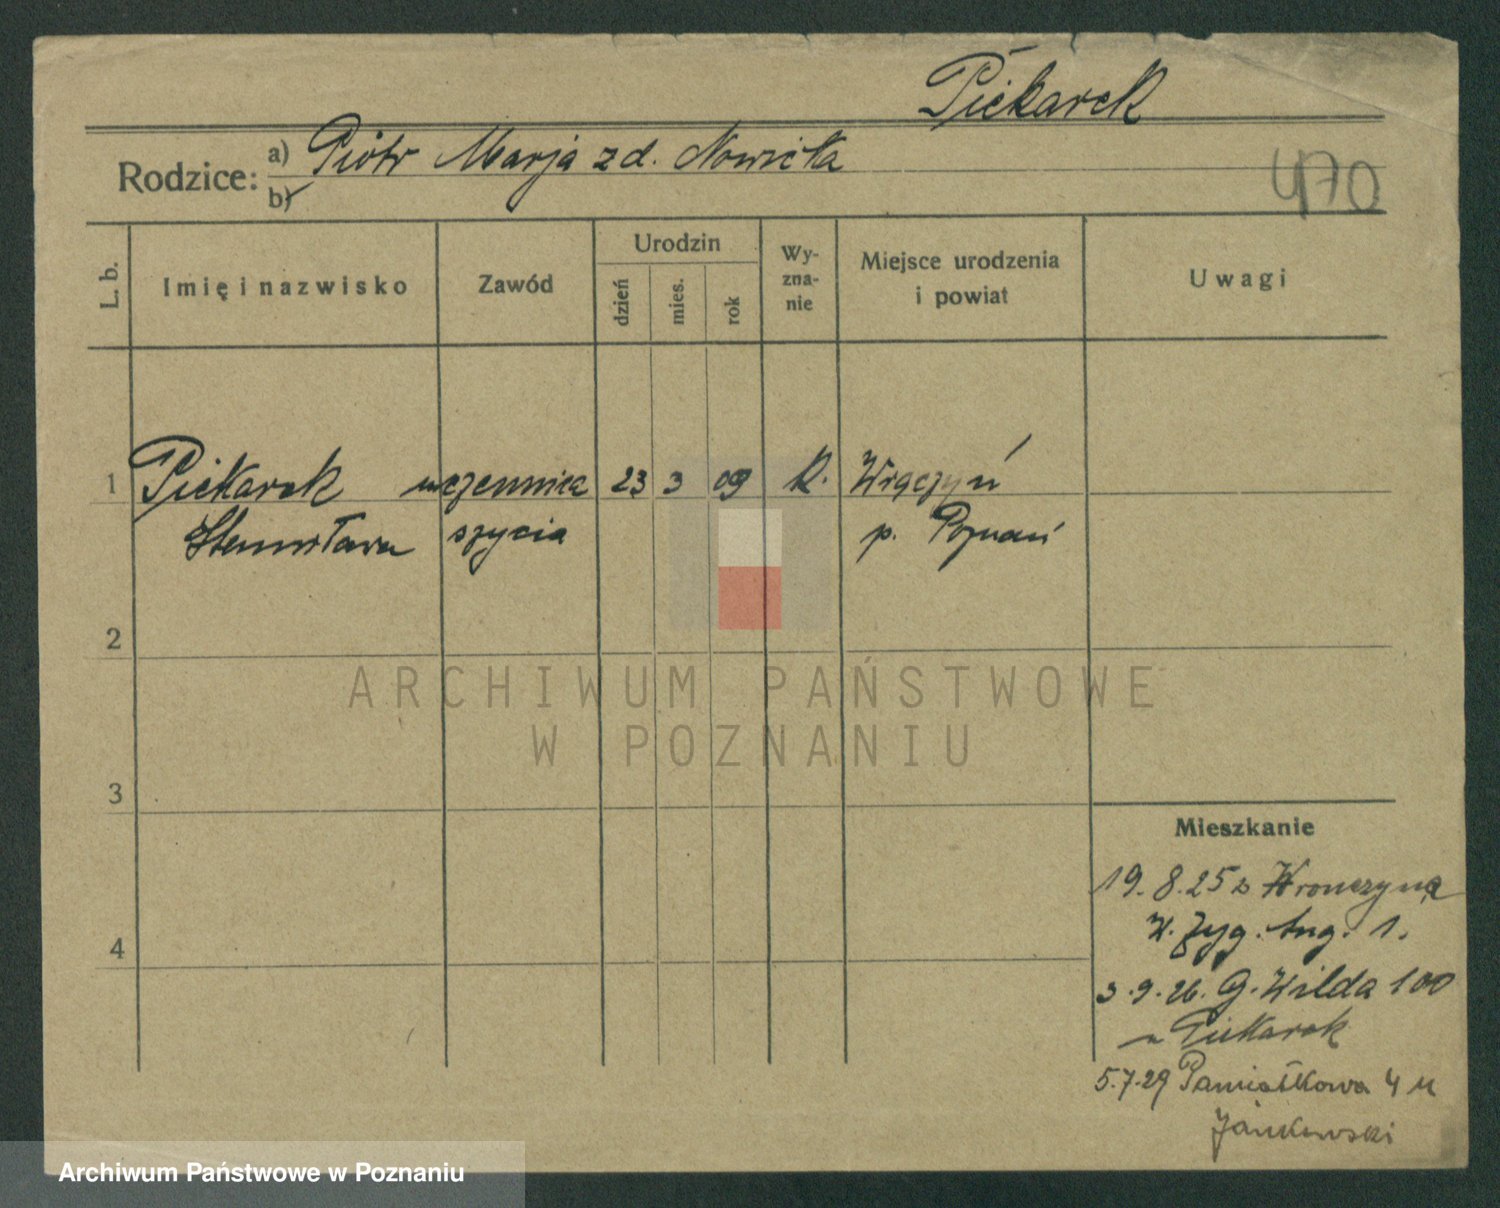 Piekarek
Rodzice: a) Piotr Marja z d. Nowicka
b)
470
L. b.
Imię i nazwisko
Zawód
Urodzin
dzień
mies.
rok
Wy-
zna-
nie
Miejsce urodzenia
i powiat
Uwagi
1 Piekarek uczennica 23 3 09 K. Wręczyń
Stanisława szycia p. Poznań
2
ARCHIWUM PAŃSTWOWE
W POZNANIU
3
Mieszkanie
19.8.25 z Wronczyna
W. Zyg. Aug. 1.
4
3.9.26. G. Wilda 100
u Piekarek
5.7.29 Pamiątkowa 4 u
Jankowski
Archiwum Państwowe w Poznaniu